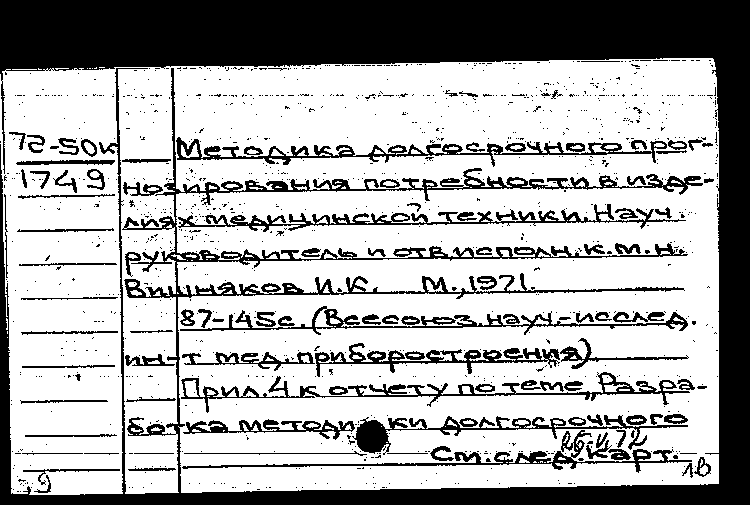 72-50к Методика долгосрочного прог-
1749 нозирования потребности в изде-
лиях медицинской техники. Науч.
руководитель и отв.исполн. к.м.н.
Вишняков И.К. М., 1971.
87-145с. (Всесоюз. науч.-исслед.
ин-т мед. приборостроения)
Прил. 4 к отчету по теме „Разра-
ботка методики долгосрочного
25.V.72
См. след. карт.